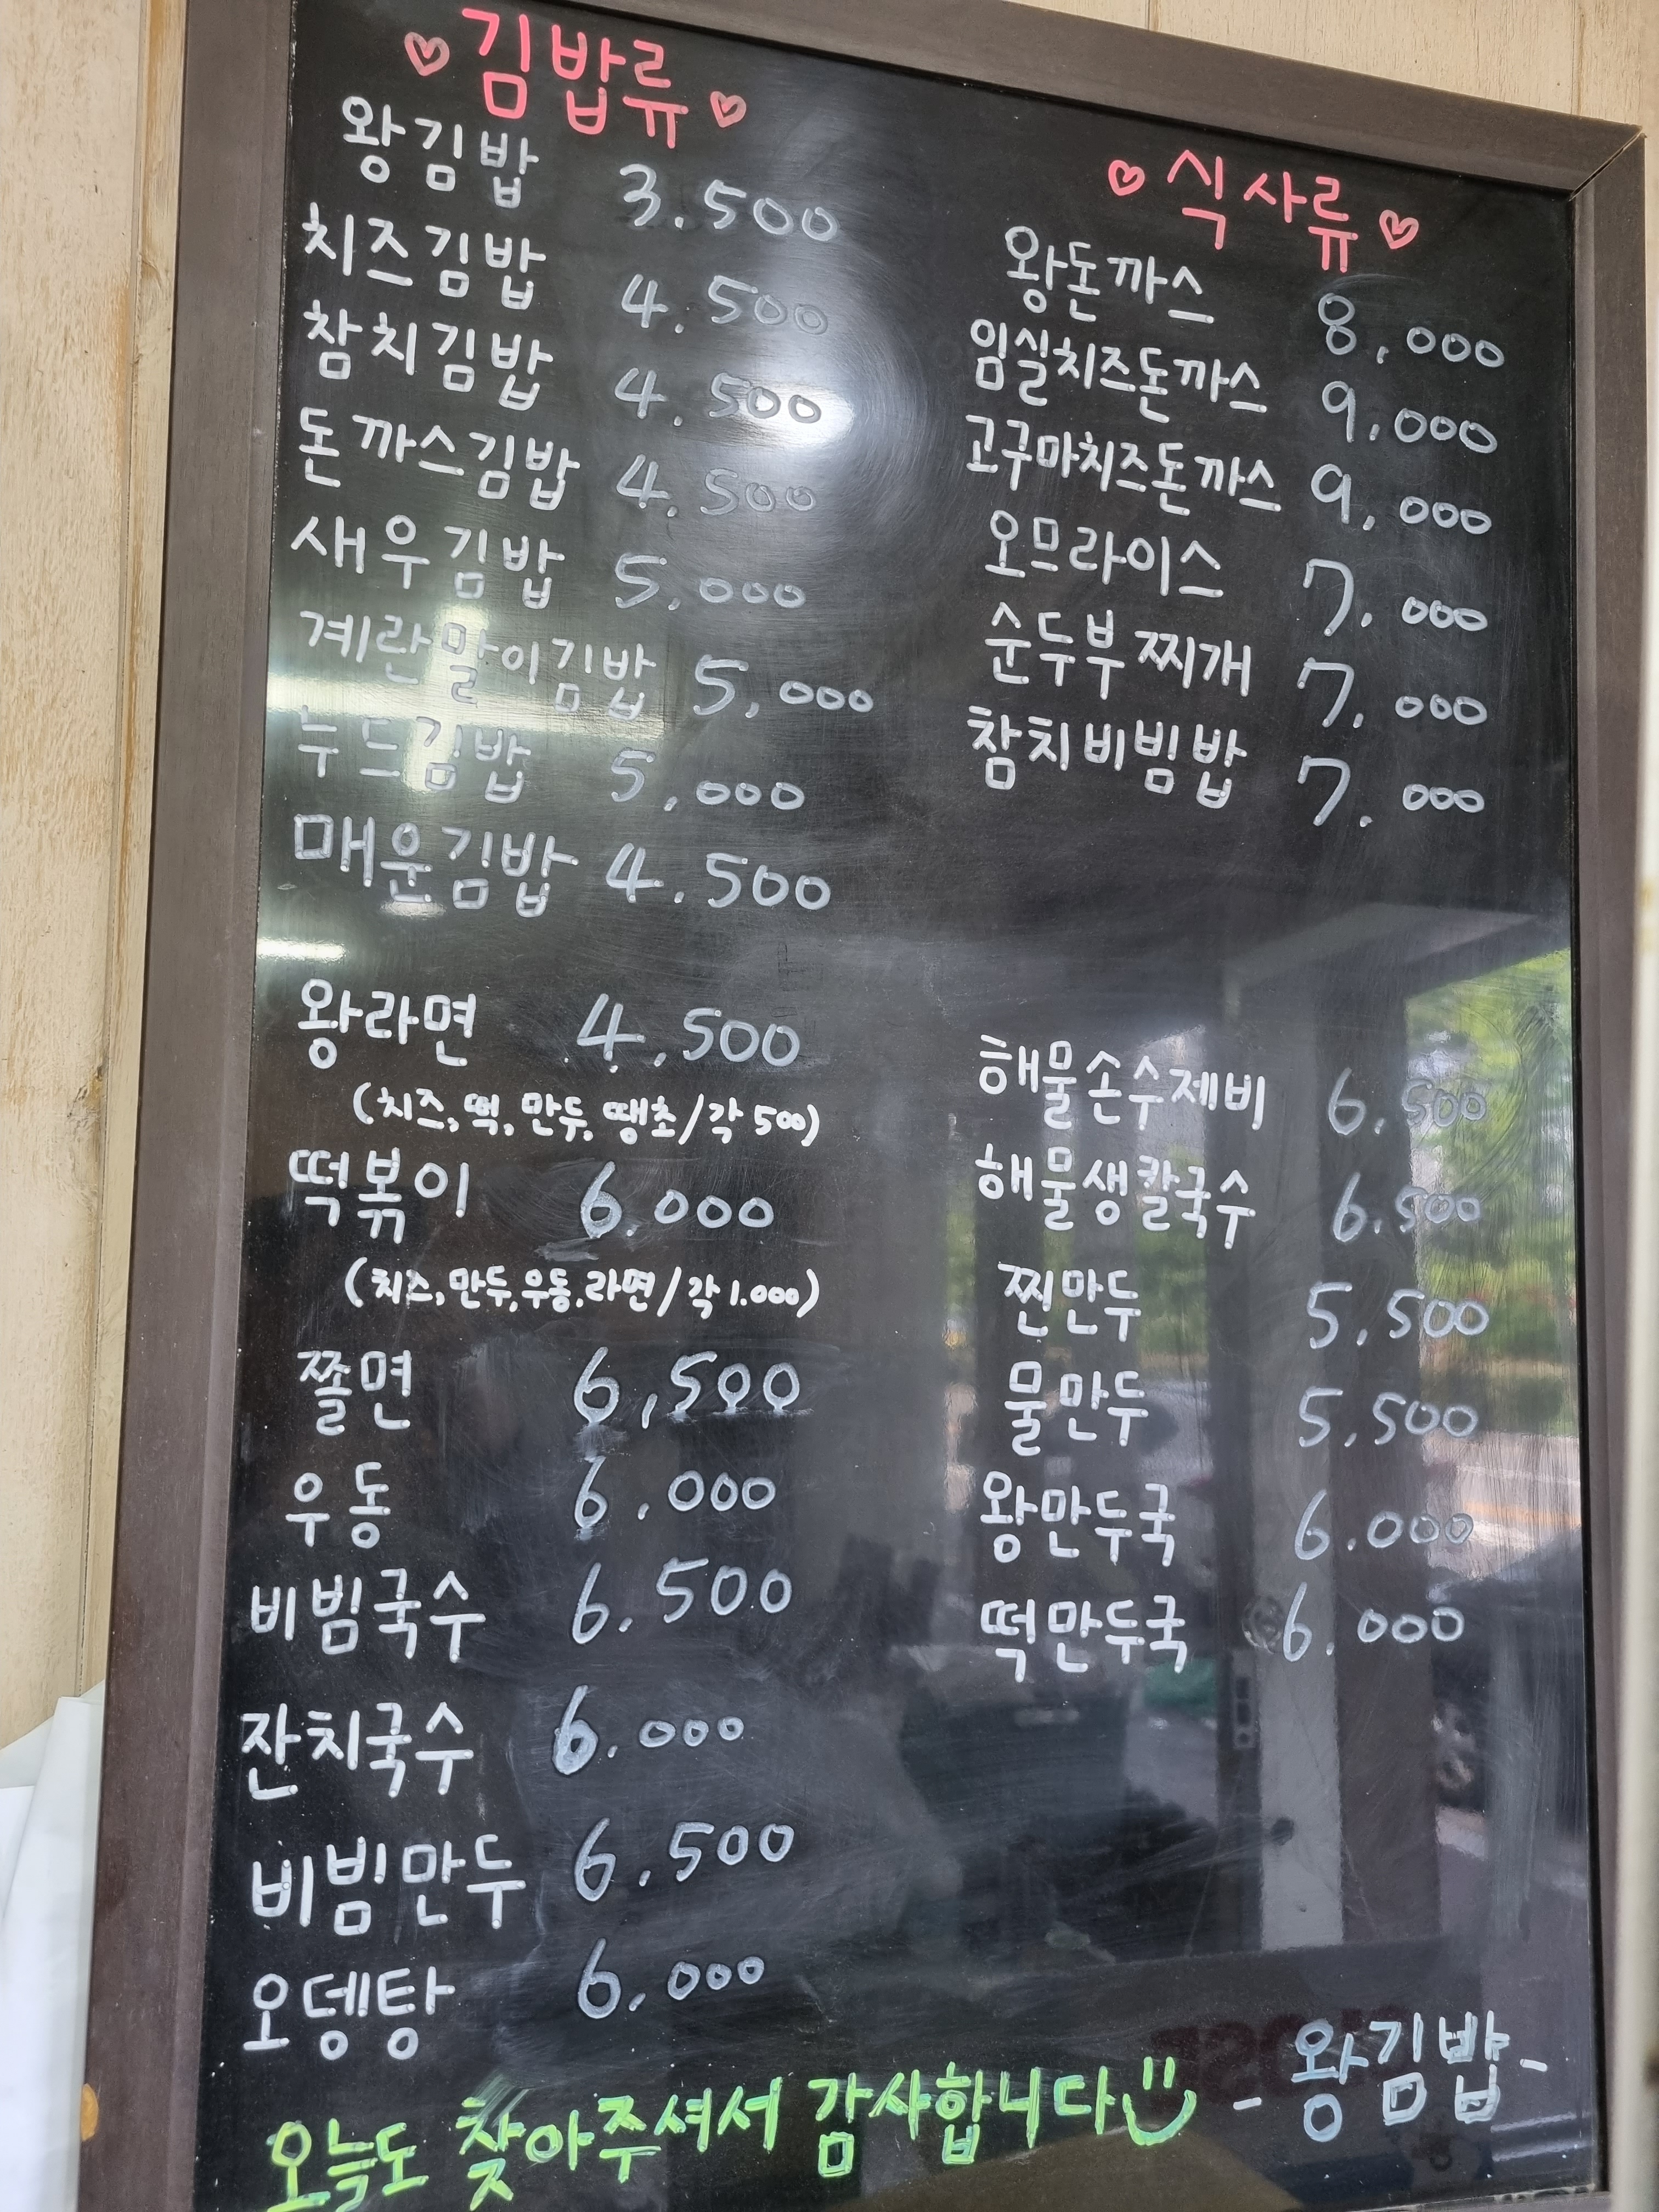 ♡김밥류♡
왕김밥 3.500
치즈김밥 4.500
참치김밥 4.500
돈까스김밥 4.500
새우김밥 5,000
계란말이김밥 5,000
누드김밥 5,000
매운김밥 4.500
왕라면 4,500
(치즈,떡,만두,땡초/각 500)
떡볶이 6.000
(치즈,만두,우동,라면/각 1.000)
쫄면 6,500
우동 6.000
비빔국수 6.500
잔치국수 6.000
비빔만두 6.500
오뎅탕 6.000
♡식사류♡
왕돈까스 8,000
임실치즈돈까스 9,000
고구마치즈돈까스 9,000
오므라이스 7.000
순두부찌개 7.000
참치비빔밥 7.000
해물손수제비 6.500
해물생칼국수 6.500
찐만두 5,500
물만두 5,500
왕만두국 6.000
떡만두국 6.000
오늘도 찾아주셔서 감사합니다 -왕김밥-